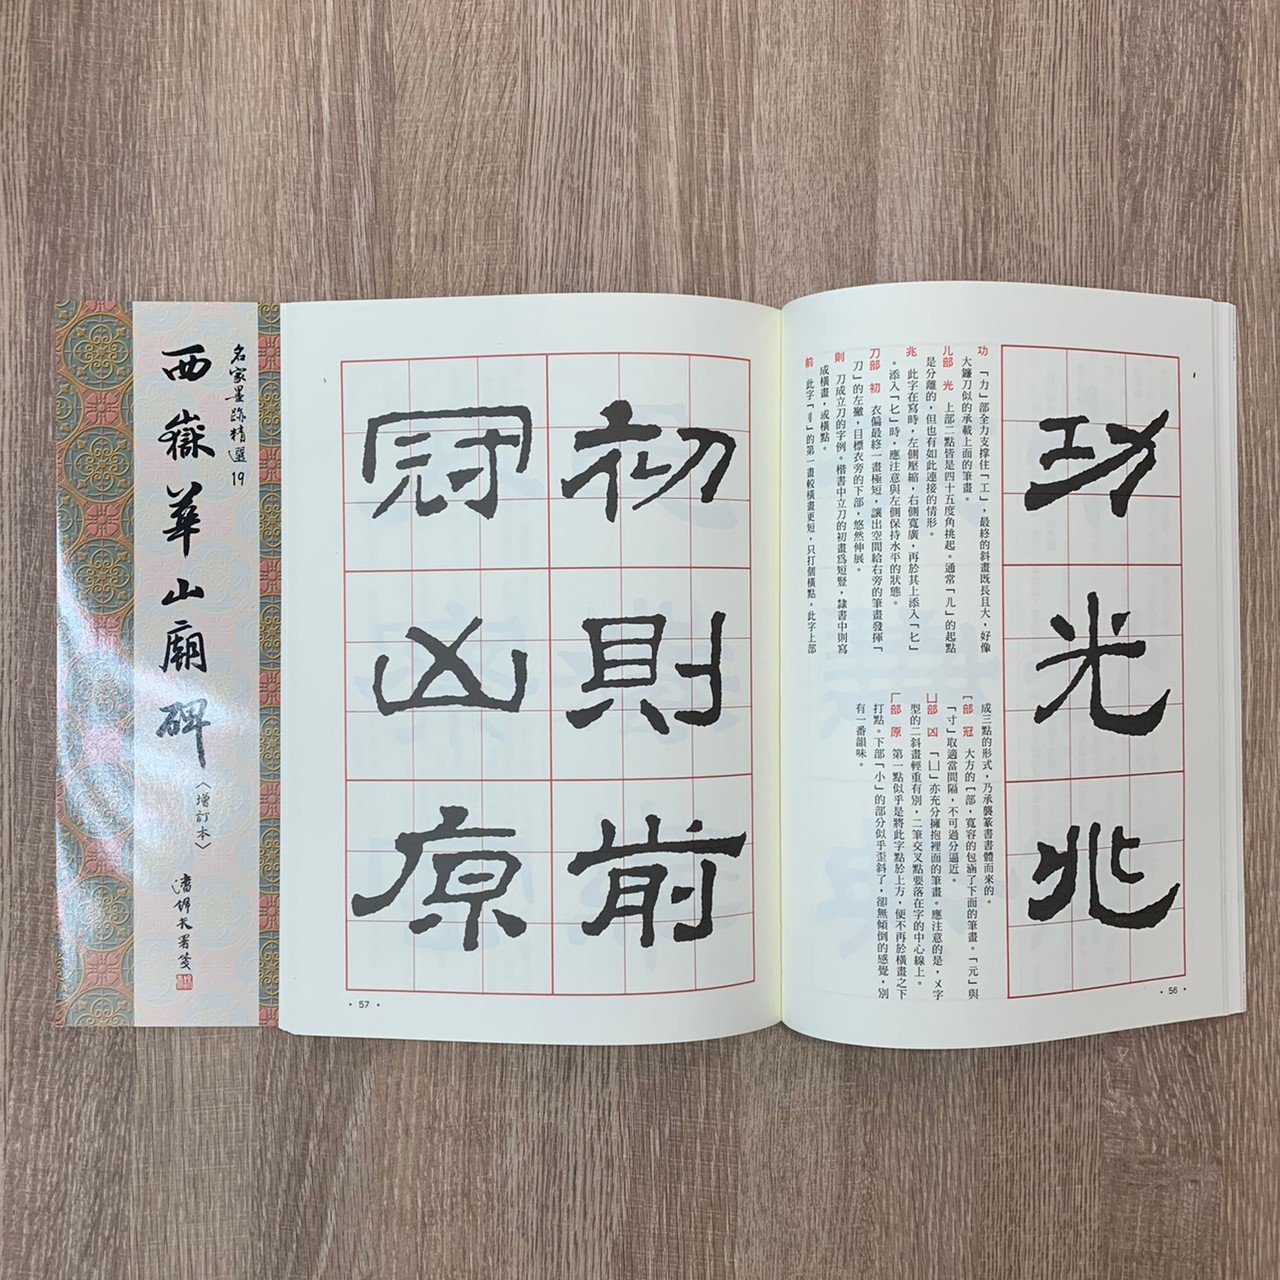 名家墨跡精選19
西嶽華山廟碑
〈增訂本〉
功
光
兆
功 「力」部全力支撐住「工」，最終的斜畫既長且大，好像
大鐮刀似的承載上面的筆畫。
儿部 光 上部二點皆是四十五度角挑起。通常「儿」的起點
是分離的，但也有如此連接的情形。
兆 此字在寫時，左側壓縮，右側寬廣，再於其上添入「匕」
。添入「匕」時，應注意與左側保持水平的狀態。
刀部 初 衣偏最終一畫極短，讓出空間給右旁的筆畫發揮「
刀」的左撇，目標衣旁的下部，悠然伸展。
則 刀成立刀的字例。楷書中立刀的初畫爲短豎，隸書中則寫
成橫畫，或橫點。
前 此字「刂」的第一畫較橫畫更短，只打個橫點。此字上部
成三點的形式，乃承襲篆書書體而來的。
冖部 冠 大方的冖部，寬容的包涵了下面的筆畫。「元」與
「寸」取適當間隔，不可過分逼近。
凵部 凶 「凵」亦充分擁抱裡面的筆畫。應注意的是，乂字
型的二斜畫輕重有別，二筆交叉點要落在字的中心線上。
厂部 原 第一點似乎是將此字點於上方，便不再於橫畫之下
打點。下部「小」的部分似乎歪斜了，卻無傾倒的感覺，別
有一番韻味。
56
初
則
前
冠
凶
原
57